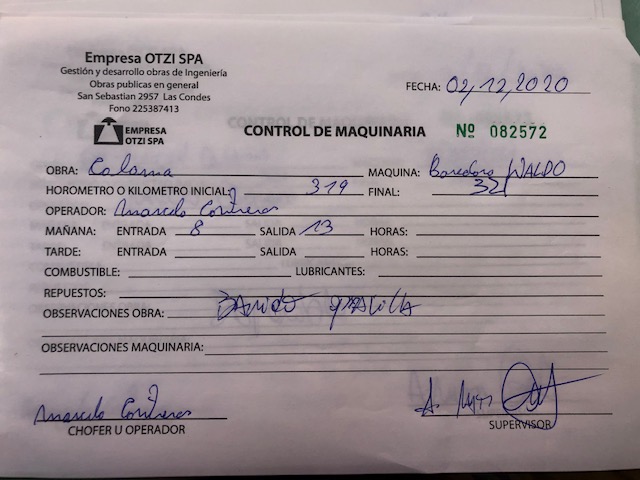 Empresa OTZI SPA
Gestión y desarrollo obras de Ingeniería
Obras publicas en general
San Sebastián 2957 Las Condes
Fono 225387413
FECHA: 02/12/2020
EMPRESA
OTZI SPA
CONTROL DE MAQUINARIA Nº 082572
OBRA: Calama MAQUINA: WALDO
HOROMETRO O KILOMETRO INICIAL: 319 FINAL: 321
OPERADOR: Contreras
MAÑANA: ENTRADA 8 SALIDA 13 HORAS:
TARDE: ENTRADA SALIDA HORAS:
COMBUSTIBLE: LUBRICANTES:
REPUESTOS:
OBSERVACIONES OBRA:
OBSERVACIONES MAQUINARIA:
Contreras
CHOFER U OPERADOR
SUPERVISOR